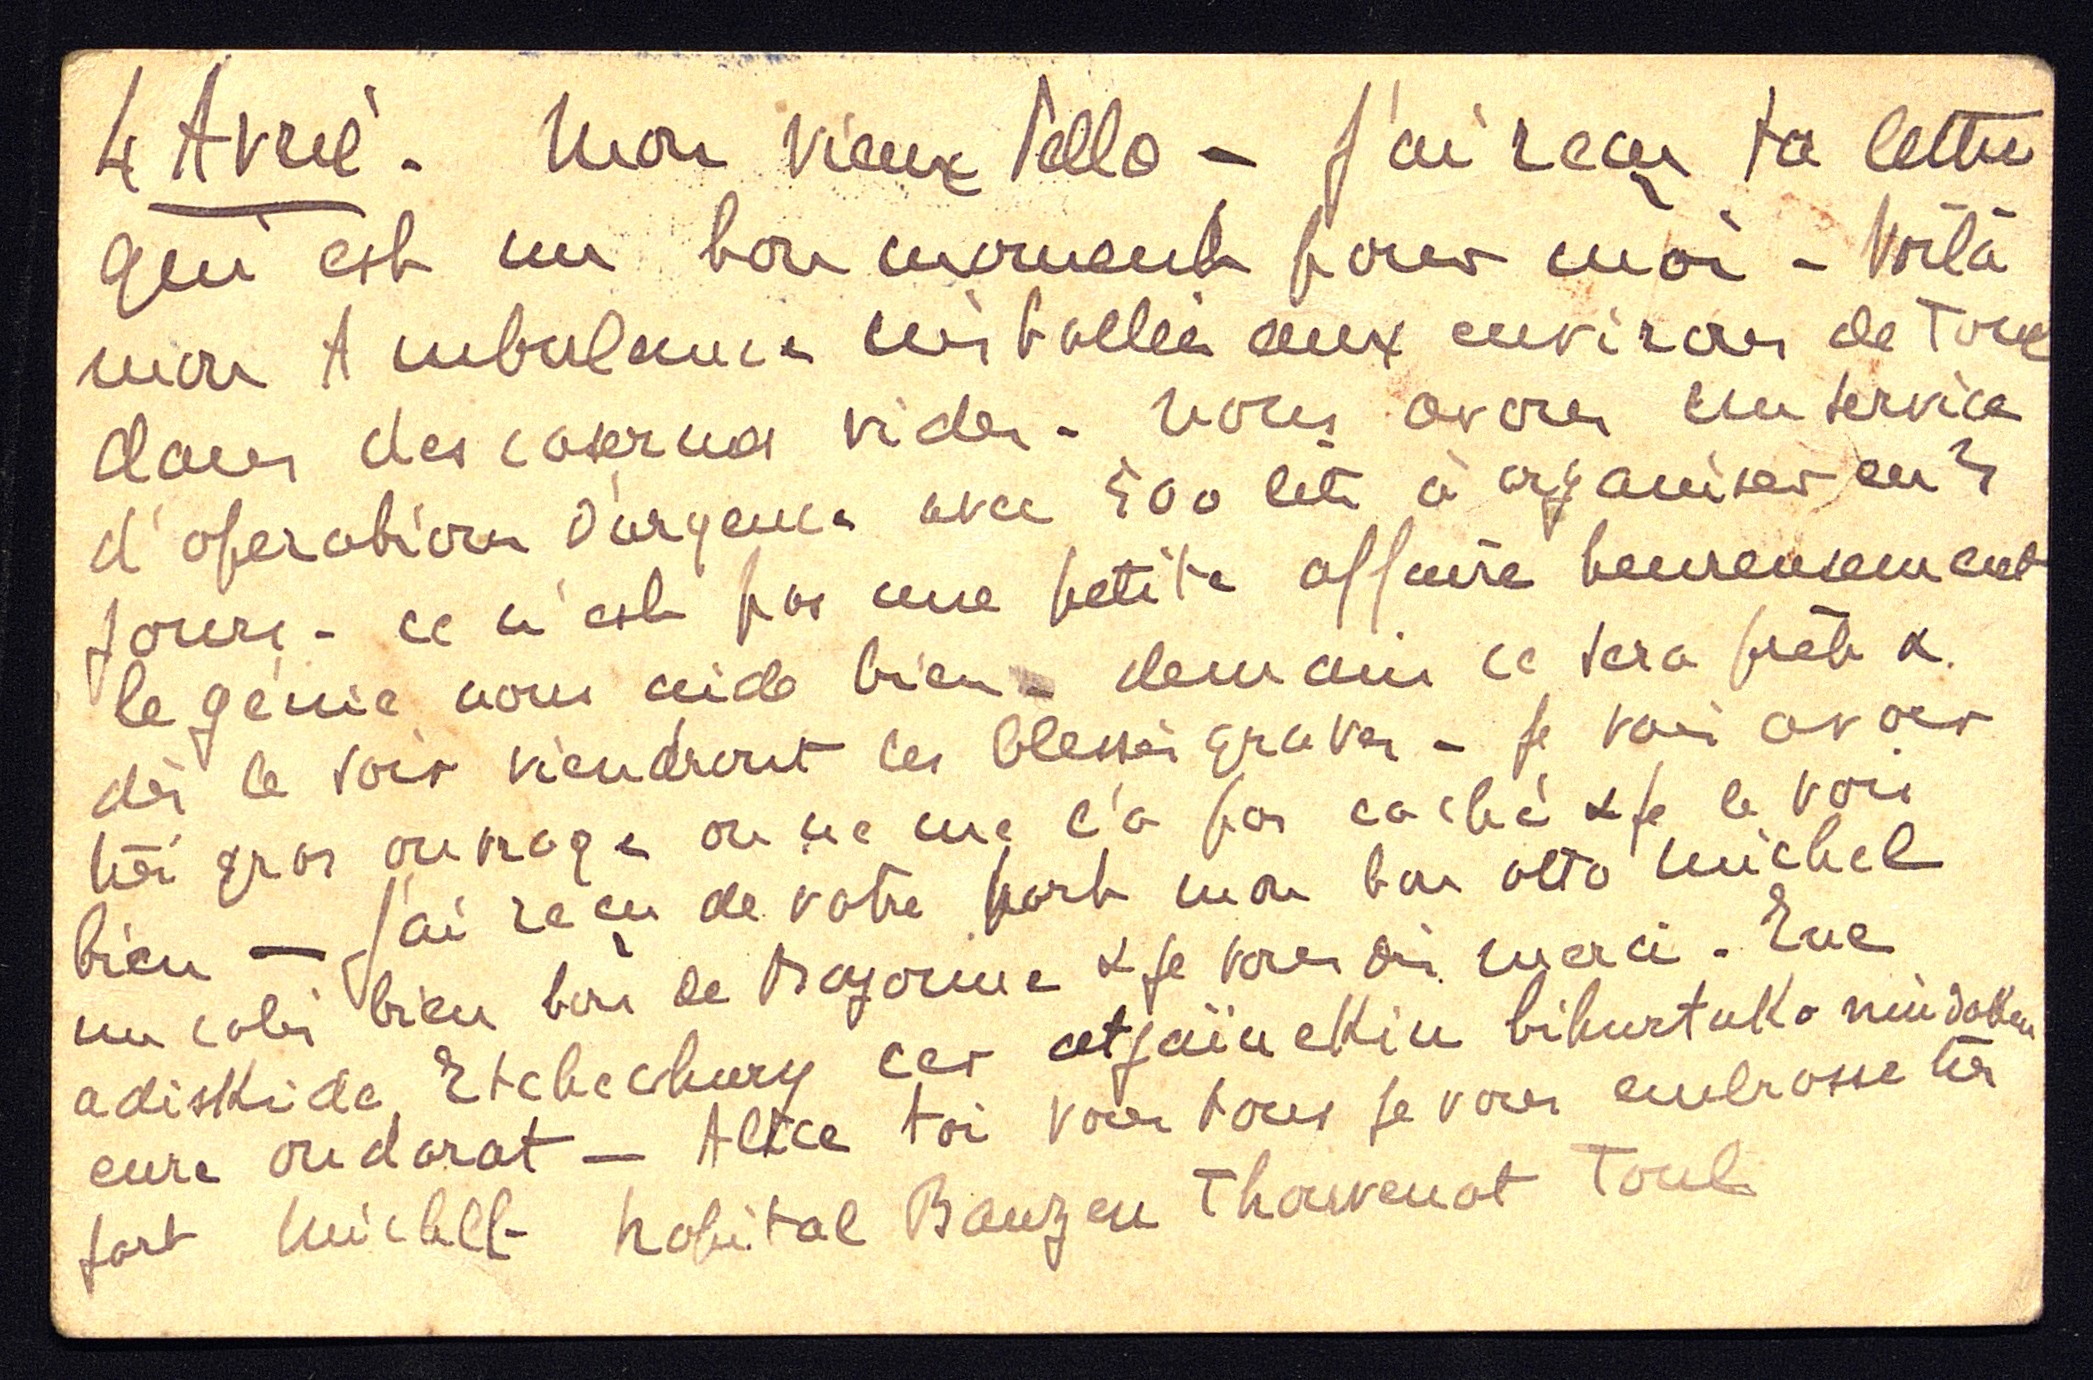 4 Avril - Mon vieux Tello - J'ai reçu ta lettre
qui est un bon moment pour moi - Voilà
mon Ambulance installée aux environs de Toul
dans des casernes vides - nous avons un service
d'operations d'urgence avec 500 lits à organiser en 3
jours - ce n'est pas une petite affaire heureusement
le génie nous aide bien - demain ce sera prêt &
dès le soir viendront les blessés graves - je vais avoir
très gros ouvrage on ne me l'a pas caché & je le vois
bien - J'ai reçu de votre part mon bon otto michel
un colis bien bon de Bayonne & je vous dis merci - Ene
adiskide Etchechury cer atjaiinekin bihurtuko
eure ondarat - Alice toi vous tous je vous embrasse très
fort Michel hopital Bauzen Thouvenot Toul